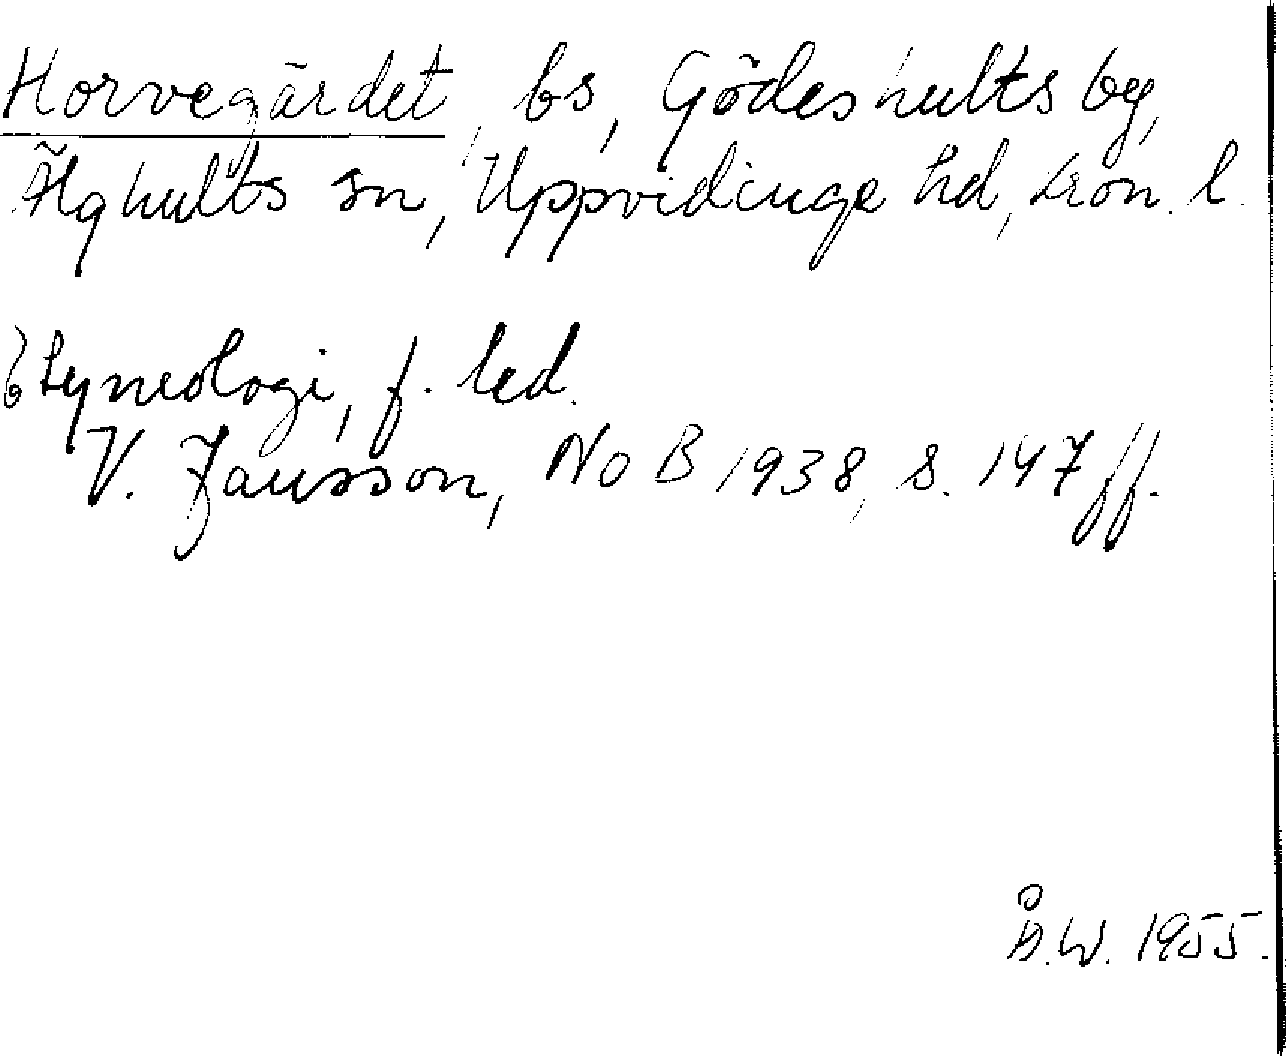 Horvegärdet, bs, Gödeshults by,
Älghults sn, Uppvidinge hd, Kron. l.
Etymologi, f. led.
V. Jansson, NoB 1938, s. 147 ff.
Å.W. 1955.